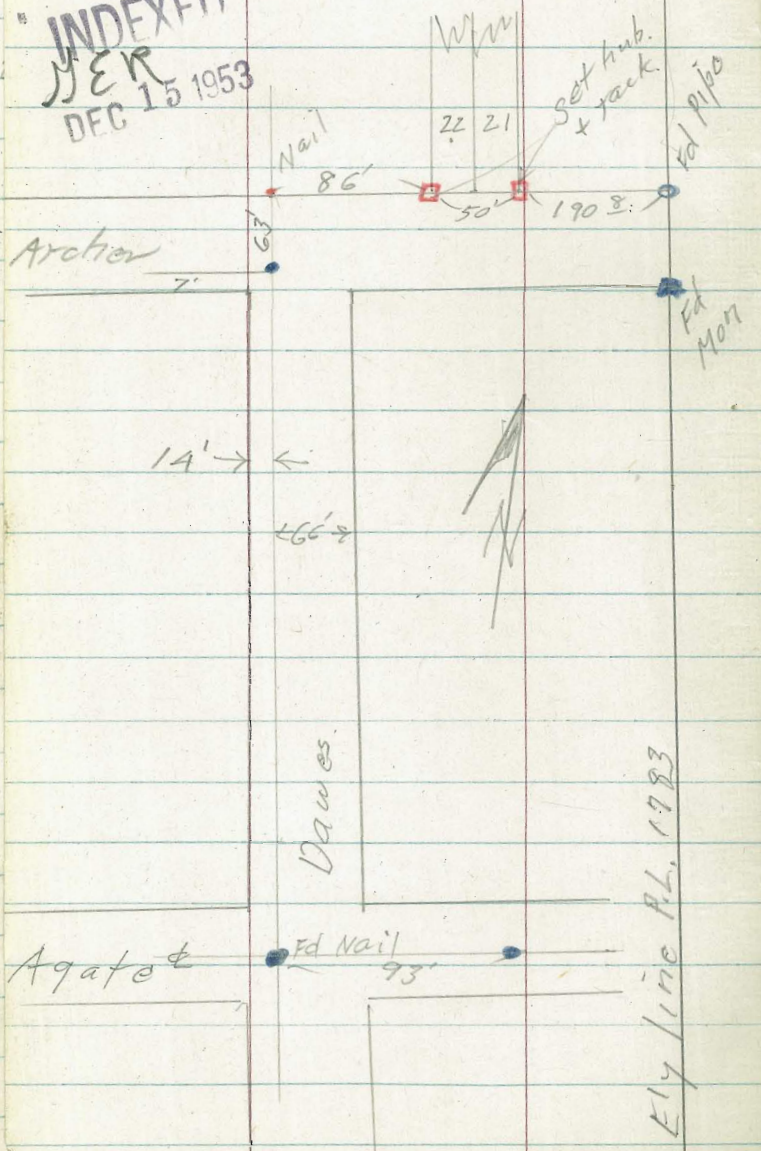 INDEXED
JER
DEC 15 1953
22 21
Set hub.
x tack.
Fd Pipe
Nail
86'
50'
190 8.
63'
Archer
7'
Fd
Mon
14'
66'
N
Dawes.
Ely line P.L. 1783
Agate ℄
Fd Nail
93'